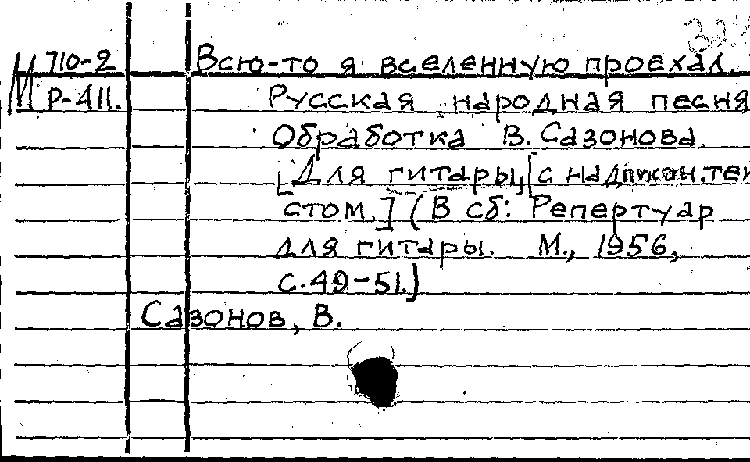 М 710-2 Всю-то я вселенную проехал.
Р-411. Русская народная песня
Обработка В. Сазонова.
[Для гитары, с надписан. тек
стом.] (В сб: Репертуар
для гитары. М., 1956,
с. 49-51.)
Сазонов, В.